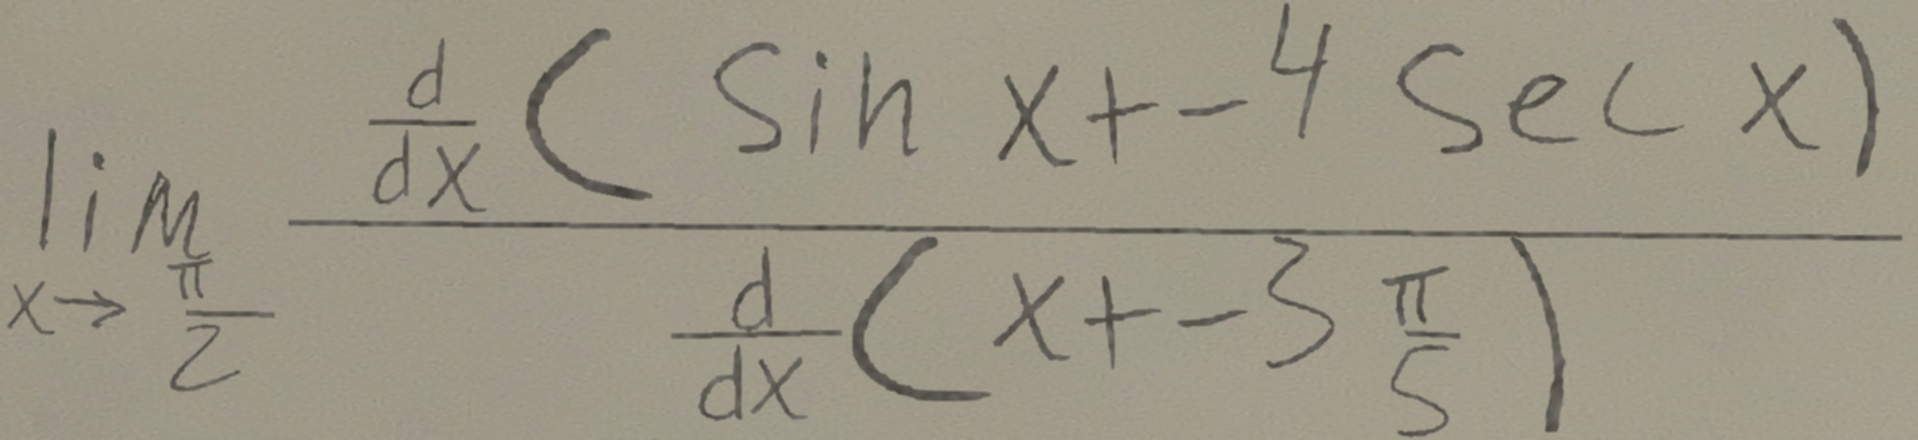 \lim_{x \to \frac{\pi}{2}} \frac{\frac{d}{dx}\left(\sin x + -4 \sec x\right)}{\frac{d}{dx}\left(x + -3 \frac{\pi}{5}\right)}